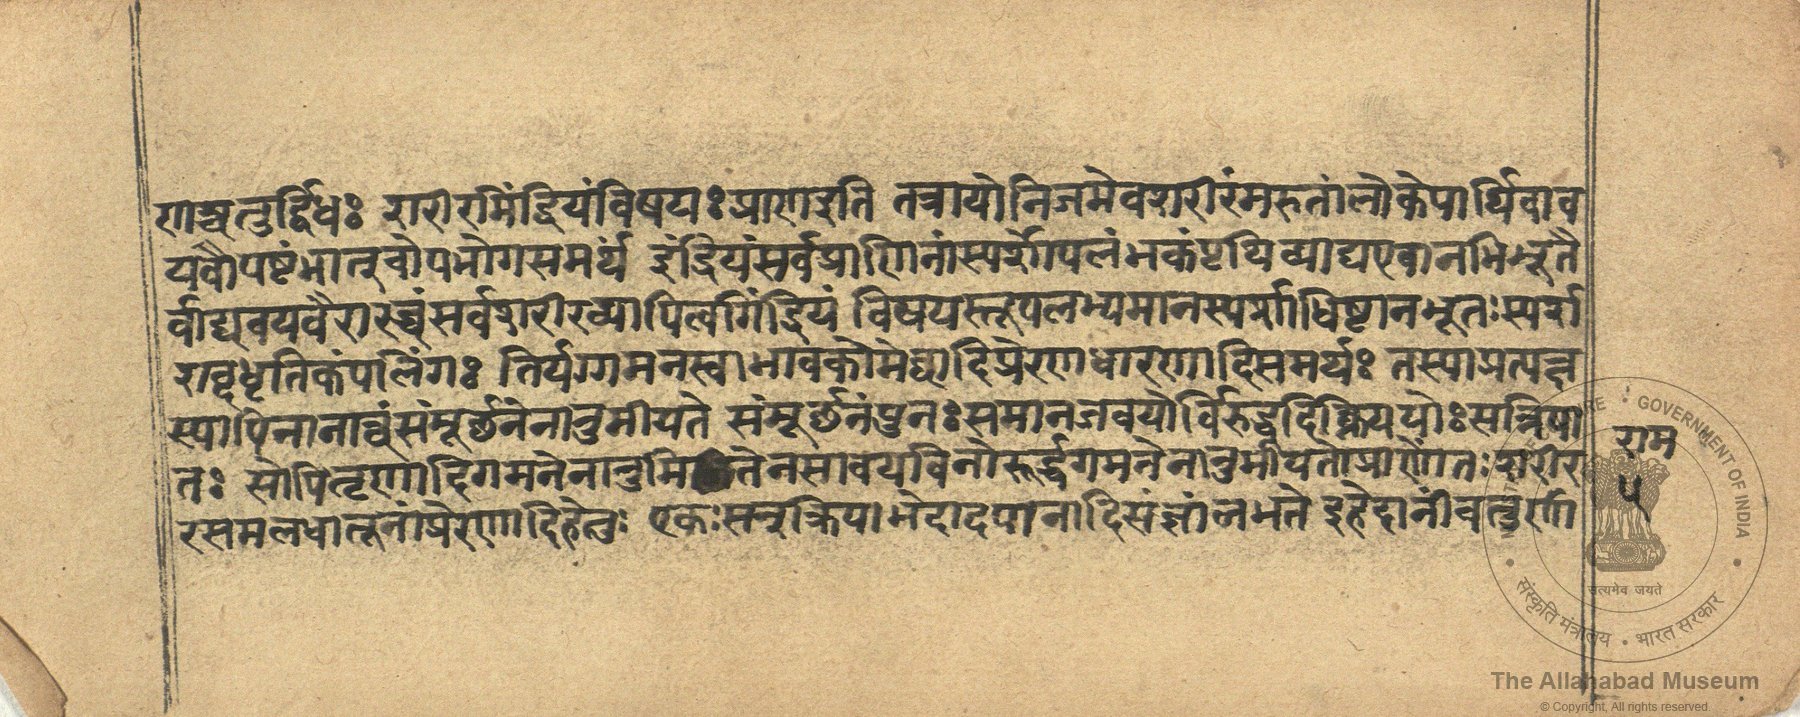 णाच्चतुर्द्विधः शरीरमिंद्रियंविषयःप्राणइति तत्रायोनिजमेवशरीरंमरुतांलोकेपार्थिवाव
यवौपष्टंभात्तुचोपभोगसमर्थं इंद्रियंसर्वप्राणिनांस्पर्शोपलंभकंपृथिव्याद्यएवानभिभूतै
र्वाद्यवयवैरारब्धंसर्वशरीरव्यापित्वगिंद्रियं विषयस्तूपलभ्यमानस्पर्शाधिष्टानभूतःस्पर्श
शब्दधृतिकंपलिंगः तिर्यग्गमनस्वाभावकोमेघादिप्रेरणाधारणादिसमर्थः तस्याप्रत्यक्ष
स्यापिनानात्वंसंमूर्छनेनानुमीयते संमूर्छनंपुनःसमानजवयोर्विरुद्धदिक्क्रिययोःसन्निपा
तः सोपितृणादिगमनेनानुमितेनसावयविनोरूर्द्धगमनेनानुमीयतेप्राणोंतःशरीर
रसमलधातूनांप्रेरणादिहेतुः एकःसन्नुक्रियाभेदादपानादिसंज्ञांलभते इहेदानींचतुर्णां
राम
५
MINISTRY OF CULTURE : GOVERNMENT OF INDIA
सत्यमेव जयते
संस्कृति मंत्रालय • भारत सरकार
The Allahabad Museum
© Copyright, All rights reserved.